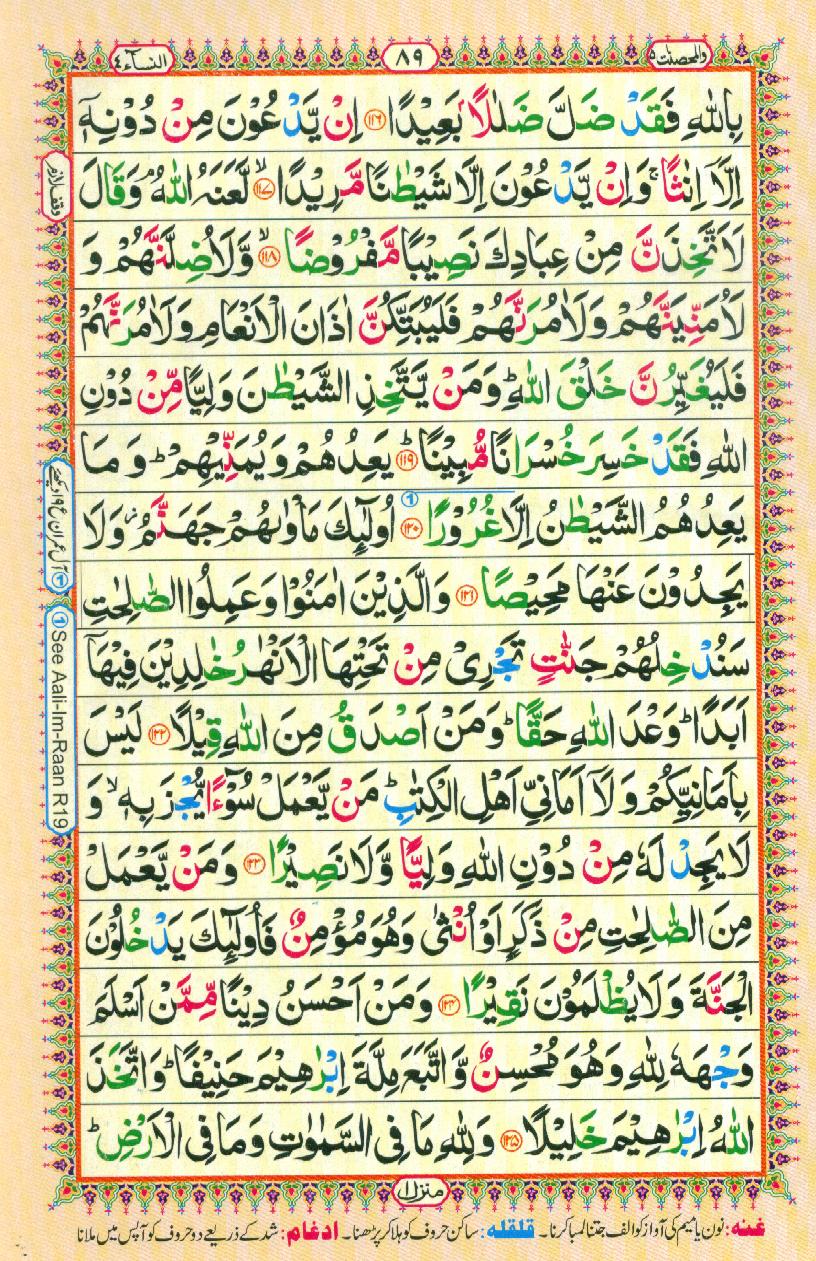 والمحصنت ٥
٨٩
النسآء ٤
بِاللّٰهِ فَقَدْ ضَلَّ ضَلٰلًاۢ بَعِيْدًا ﴿۱۱۶﴾ اِنْ يَّدْعُوْنَ مِنْ دُوْنِهٖۤ
اِلَّاۤ اِنٰثًا ۚ وَاِنْ يَّدْعُوْنَ اِلَّا شَيْطٰنًا مَّرِيْدًا ۙ﴿۱۱۷﴾ لَّعَنَهُ اللّٰهُ ۘ وَقَالَ
لَاَتَّخِذَنَّ مِنْ عِبَادِكَ نَصِيْبًا مَّفْرُوْضًا ۙ﴿۱۱۸﴾ وَّلَاُضِلَّنَّهُمْ وَ
لَاُمَنِّيَنَّهُمْ وَلَاٰمُرَنَّهُمْ فَلَيُبَتِّكُنَّ اٰذَانَ الْاَنْعَامِ وَلَاٰمُرَنَّهُمْ
فَلَيُغَيِّرُنَّ خَلْقَ اللّٰهِ ؕ وَمَنْ يَّتَّخِذِ الشَّيْطٰنَ وَلِيًّا مِّنْ دُوْنِ
اللّٰهِ فَقَدْ خَسِرَ خُسْرَانًا مُّبِيْنًا ؕ﴿۱۱۹﴾ يَعِدُهُمْ وَيُمَنِّيْهِمْ ؕ وَمَا
يَعِدُهُمُ الشَّيْطٰنُ اِلَّا غُرُوْرًا ﴿۱۲۰﴾ اُولٰٓئِكَ مَاْوٰىهُمْ جَهَنَّمُ ؗ وَلَا
يَجِدُوْنَ عَنْهَا مَحِيْصًا ﴿۱۲۱﴾ وَالَّذِيْنَ اٰمَنُوْا وَعَمِلُوا الصّٰلِحٰتِ
سَنُدْخِلُهُمْ جَنّٰتٍ تَجْرِىْ مِنْ تَحْتِهَا الْاَنْهٰرُ خٰلِدِيْنَ فِيْهَاۤ
اَبَدًا ؕ وَعْدَ اللّٰهِ حَقًّا ؕ وَمَنْ اَصْدَقُ مِنَ اللّٰهِ قِيْلًا ﴿۱۲۲﴾ لَيْسَ
بِاَمَانِيِّكُمْ وَلَاۤ اَمَانِىِّ اَهْلِ الْكِتٰبِ ؕ مَنْ يَّعْمَلْ سُوْٓءًا يُّجْزَ بِهٖ ۙ وَ
لَا يَجِدْ لَهٗ مِنْ دُوْنِ اللّٰهِ وَلِيًّا وَّلَا نَصِيْرًا ﴿۱۲۳﴾ وَمَنْ يَّعْمَلْ
مِنَ الصّٰلِحٰتِ مِنْ ذَكَرٍ اَوْ اُنْثٰى وَهُوَ مُؤْمِنٌ فَاُولٰٓئِكَ يَدْخُلُوْنَ
الْجَنَّةَ وَلَا يُظْلَمُوْنَ نَقِيْرًا ﴿۱۲۴﴾ وَمَنْ اَحْسَنُ دِيْنًا مِّمَّنْ اَسْلَمَ
وَجْهَهٗ لِلّٰهِ وَهُوَ مُحْسِنٌ وَّاتَّبَعَ مِلَّةَ اِبْرٰهِيْمَ حَنِيْفًا ؕ وَاتَّخَذَ
اللّٰهُ اِبْرٰهِيْمَ خَلِيْلًا ﴿۱۲۵﴾ وَلِلّٰهِ مَا فِى السَّمٰوٰتِ وَمَا فِى الْاَرْضِ ؕ
وقف لازم
① آل عمران ع ۱۹ دیکھئے
① See Aali-Im-Raan R19
منزل ۱
غنه: نون یا میم کی آواز کو الف جتنا لمبا کرنا۔ قلقله: ساکن حروف کو ہلا کر پڑھنا۔ ادغام: شد کے ذریعے دو حروف کو آپس میں ملانا